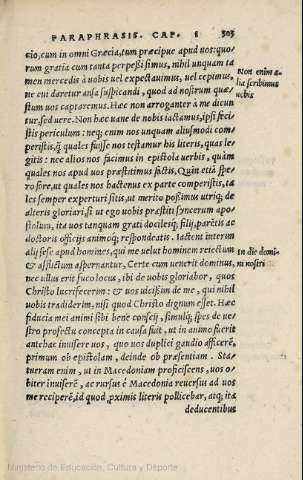 PARAPHRASIS. CAP. I 303
cio, cum in omni Græcia, tum præcipue apud uos: quo/
rum gratia cum tanta perpeßi simus, nihil unquam ta
men mercedis à uobis uel expectauimus, uel cepimus,
ne cui daretur ansa suspicandi, quod ad nostrum quæ/
stum uos captaremus. Hæc non arroganter à me dicun
tur, sed uere. Non hæc uane de nobis iactamus, ipsi feci
stis periculum: neq; enim nos unquam aliusmodi com/
peristis, q̃ quales fuisse nos testamur his literis, quas le/
gitis: nec alios nos facimus in epistola uerbis, quàm
quales nos apud uos præstitimus factis. Quin etiã spe/
ro fore, ut quales nos hactenus ex parte comperistis, ta
les semper experturi sitis, ut merito poßimus utriq; de
alteris gloriari, si ut ego uobis præstiti syncerum apo/
stolum, ita uos tanquam grati docilesq; filij, parẽtis ac
doctoris officijs animoq; respondeatis. Iactent interim
alij sese apud homines, qui me uelut hominem reiectum
& afflictum aspernantur. Certe cum uenerit dominus,
nec ullus erit fuco locus, ibi de uobis gloriabor, quos
Christo lucrifecerim: & uos uicißim de me, qui nihil
uobis tradiderim, nisi quod Christo dignum esset. Hæc
fiducia mei animi sibi bene conscij, simulq; spes de ue/
stro profectu concepta in causa fuit, ut in animo fuerit
antehac inuisere uos, quo uos duplici gaudio afficerẽ,
primum ob epistolam, deinde ob præsentiam. Sta/
tueram enim, ut in Macedoniam proficiscens, uos o/
biter inuiserẽ, ac rursus è Macedonia reuersus ad uos
me reciperẽ, id quod, proximis literis pollicebar, atq; ita
deducentibus
Non enim a/
lia scribimus
uobis
In die domi/
ni nostri
Ministerio de Educación, Cultura y Deporte